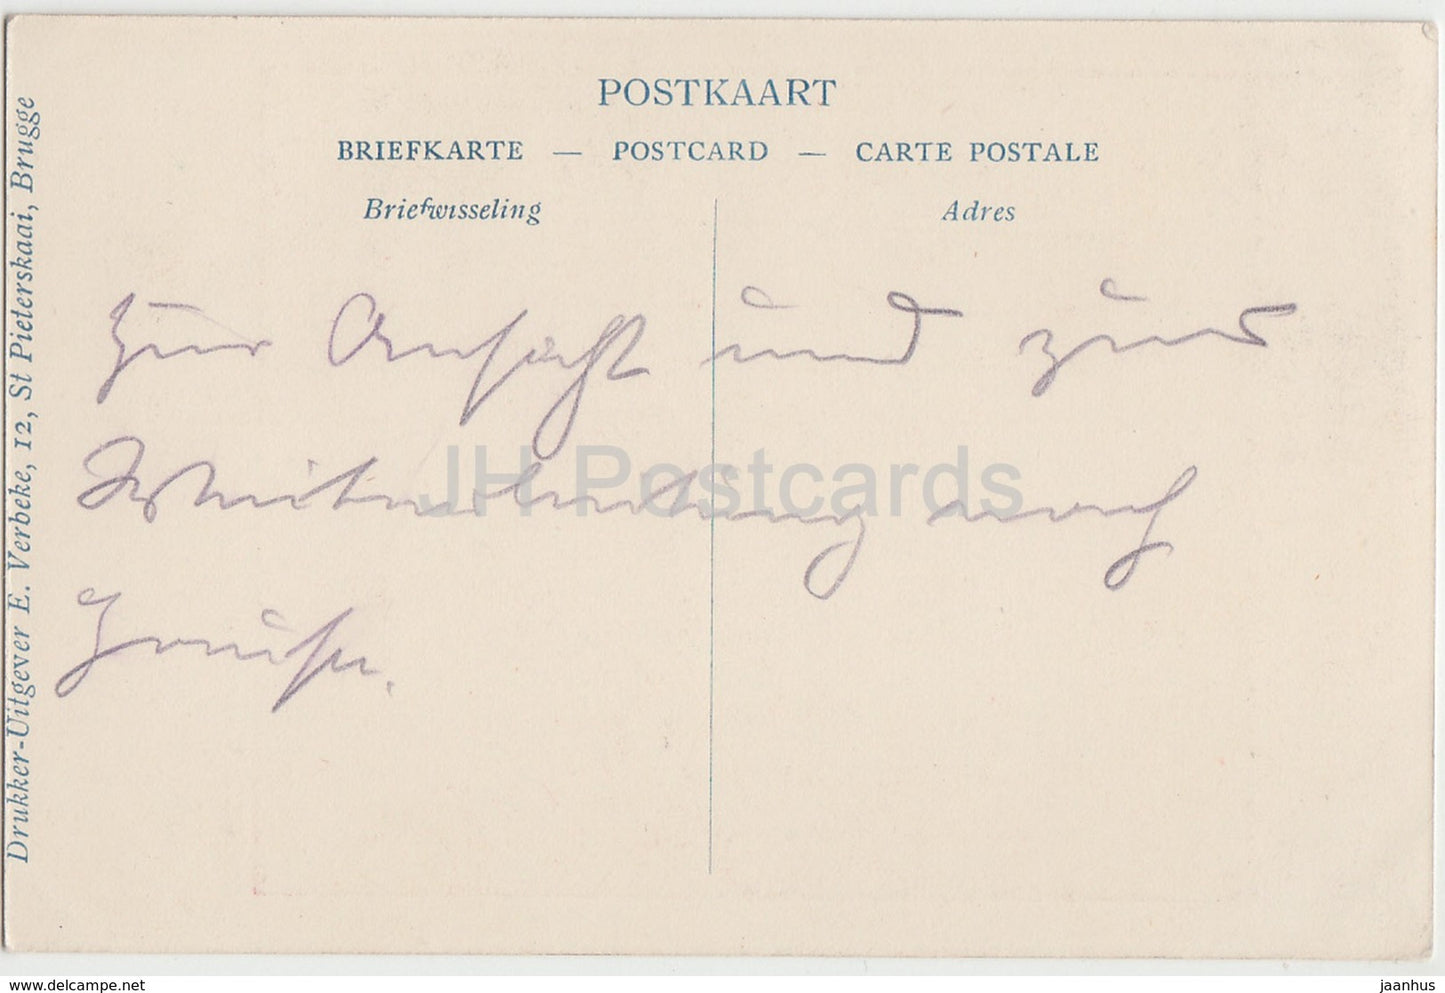 POSTKAART
BRIEFKARTE — POSTCARD — CARTE POSTALE
Briefwisseling
Adres
Drukker-Uitgever E. Verbeke, 12, St Pieterskaai, Brugge
Zur Ansicht und zur
nach
Hause.
JH Postcards
delcampe.net
jaanhus